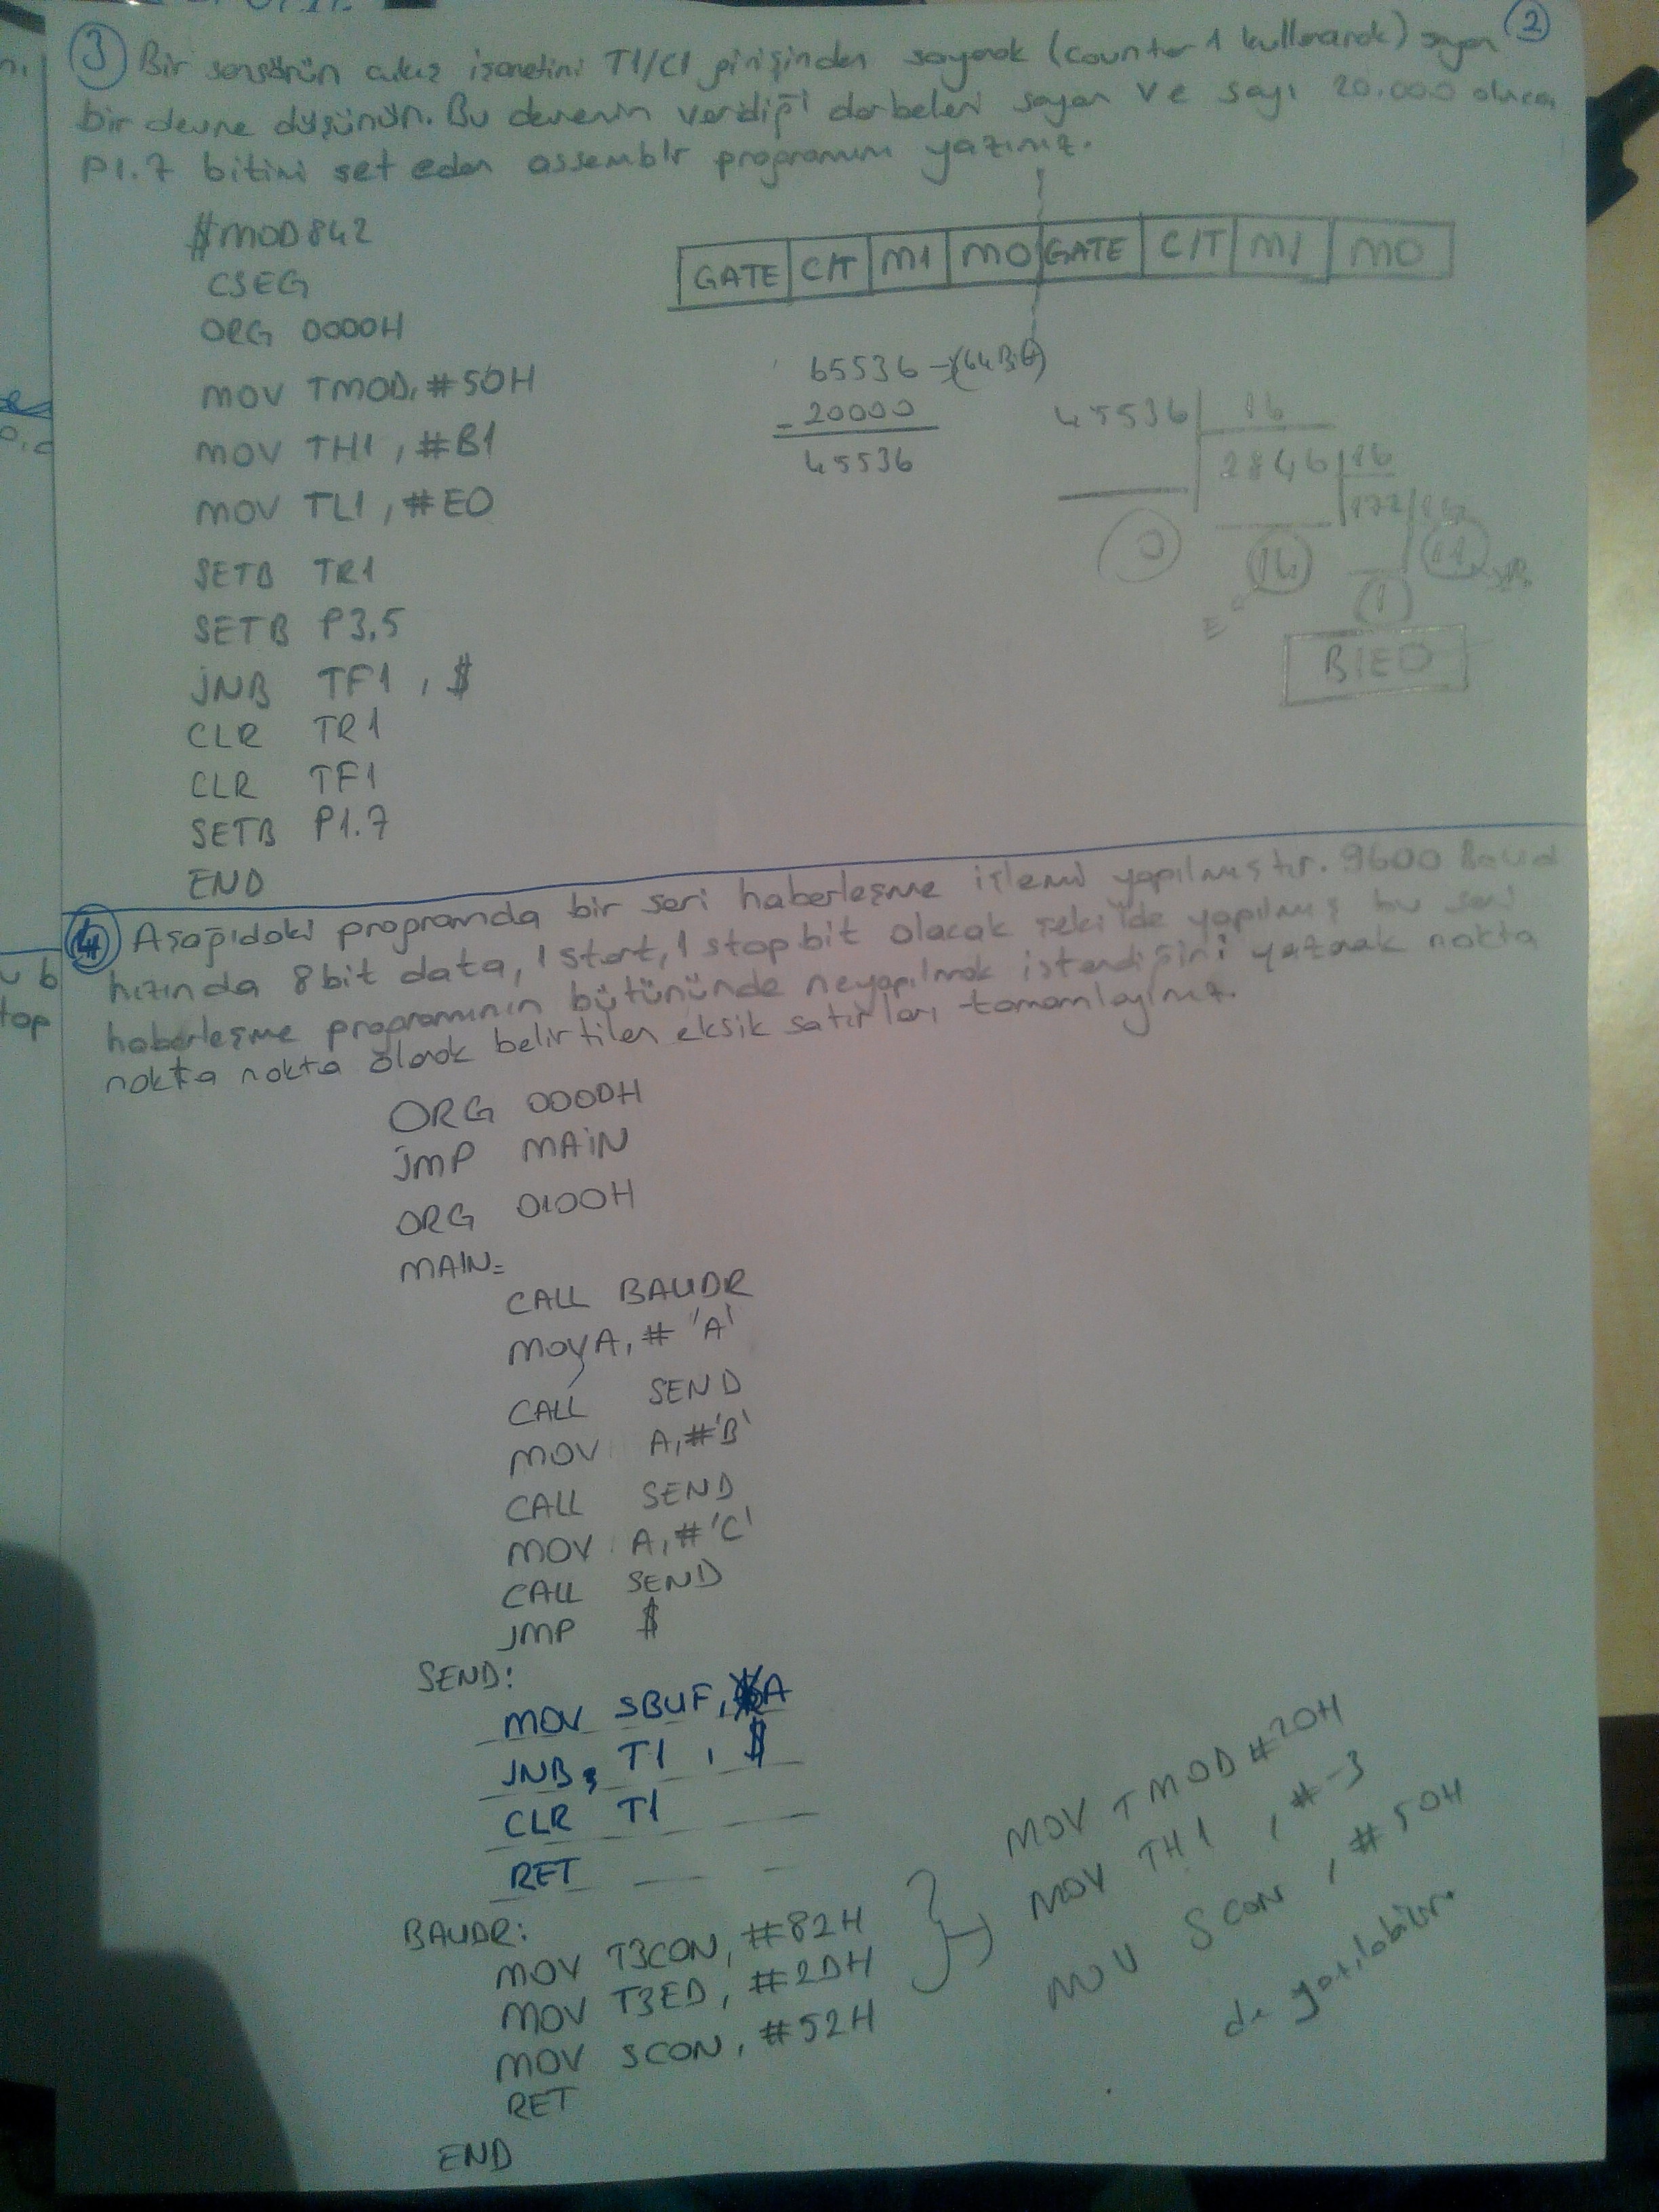 2
3 Bir sensörün çıkış işaretini T1/C1 girişinden sayarak (counter 1 kullanarak) sayan
bir devre düşünün. Bu devrenin verdiği darbeleri sayan ve sayı 20.000 olunca
P1.7 bitini set eden assemblr programını yazınız.
$MOD842
CSEG
ORG 0000H
MOV TMOD, #50H
MOV TH1, #B1
MOV TL1, #E0
SETB TR1
SETB P3.5
JNB TF1, $
CLR TR1
CLR TF1
SETB P1.7
END
GATE C/T M1 M0 GATE C/T M1 M0
65536 → (64 Bit)
- 20000
45536
45536 16
2846 16
177 16
0 14 1 11
E
B1E0
4 Aşağıdaki programda bir seri haberleşme işlemi yapılmıştır. 9600 Baud
hızında 8 bit data, 1 start, 1 stop bit olacak şekilde yapılmış bu seri
haberleşme programının bütününde ne yapılmak istendiğini yazarak nokta
nokta nokta olarak belirtilen eksik satırları tamamlayınız.
ORG 0000H
JMP MAIN
ORG 0100H
MAIN:
CALL BAUDR
MOV A, # 'A'
CALL SEND
MOV A, #'B'
CALL SEND
MOV A, #'C'
CALL SEND
JMP $
SEND:
MOV SBUF, A
JNB, T1, $
CLR T1
RET
BAUDR:
MOV T3CON, #82H
MOV T3ED, #2DH
MOV SCON, #52H
RET
END
MOV TMOD #20H
MOV TH1, #-3
MOV SCON, #50H
de yazılabilir.